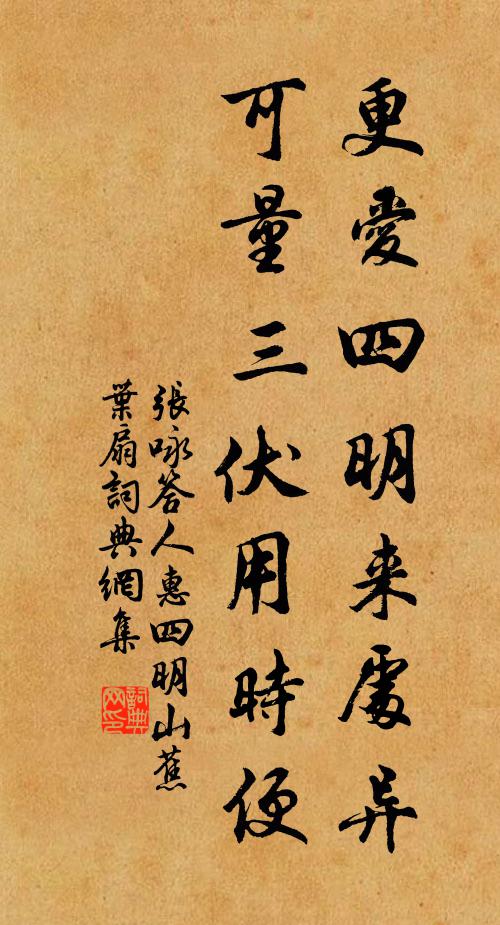 更愛四明来處异
可量三伏用時便
張咏答人惠四明山蕉
葉扇詞典網集
詞典
网印